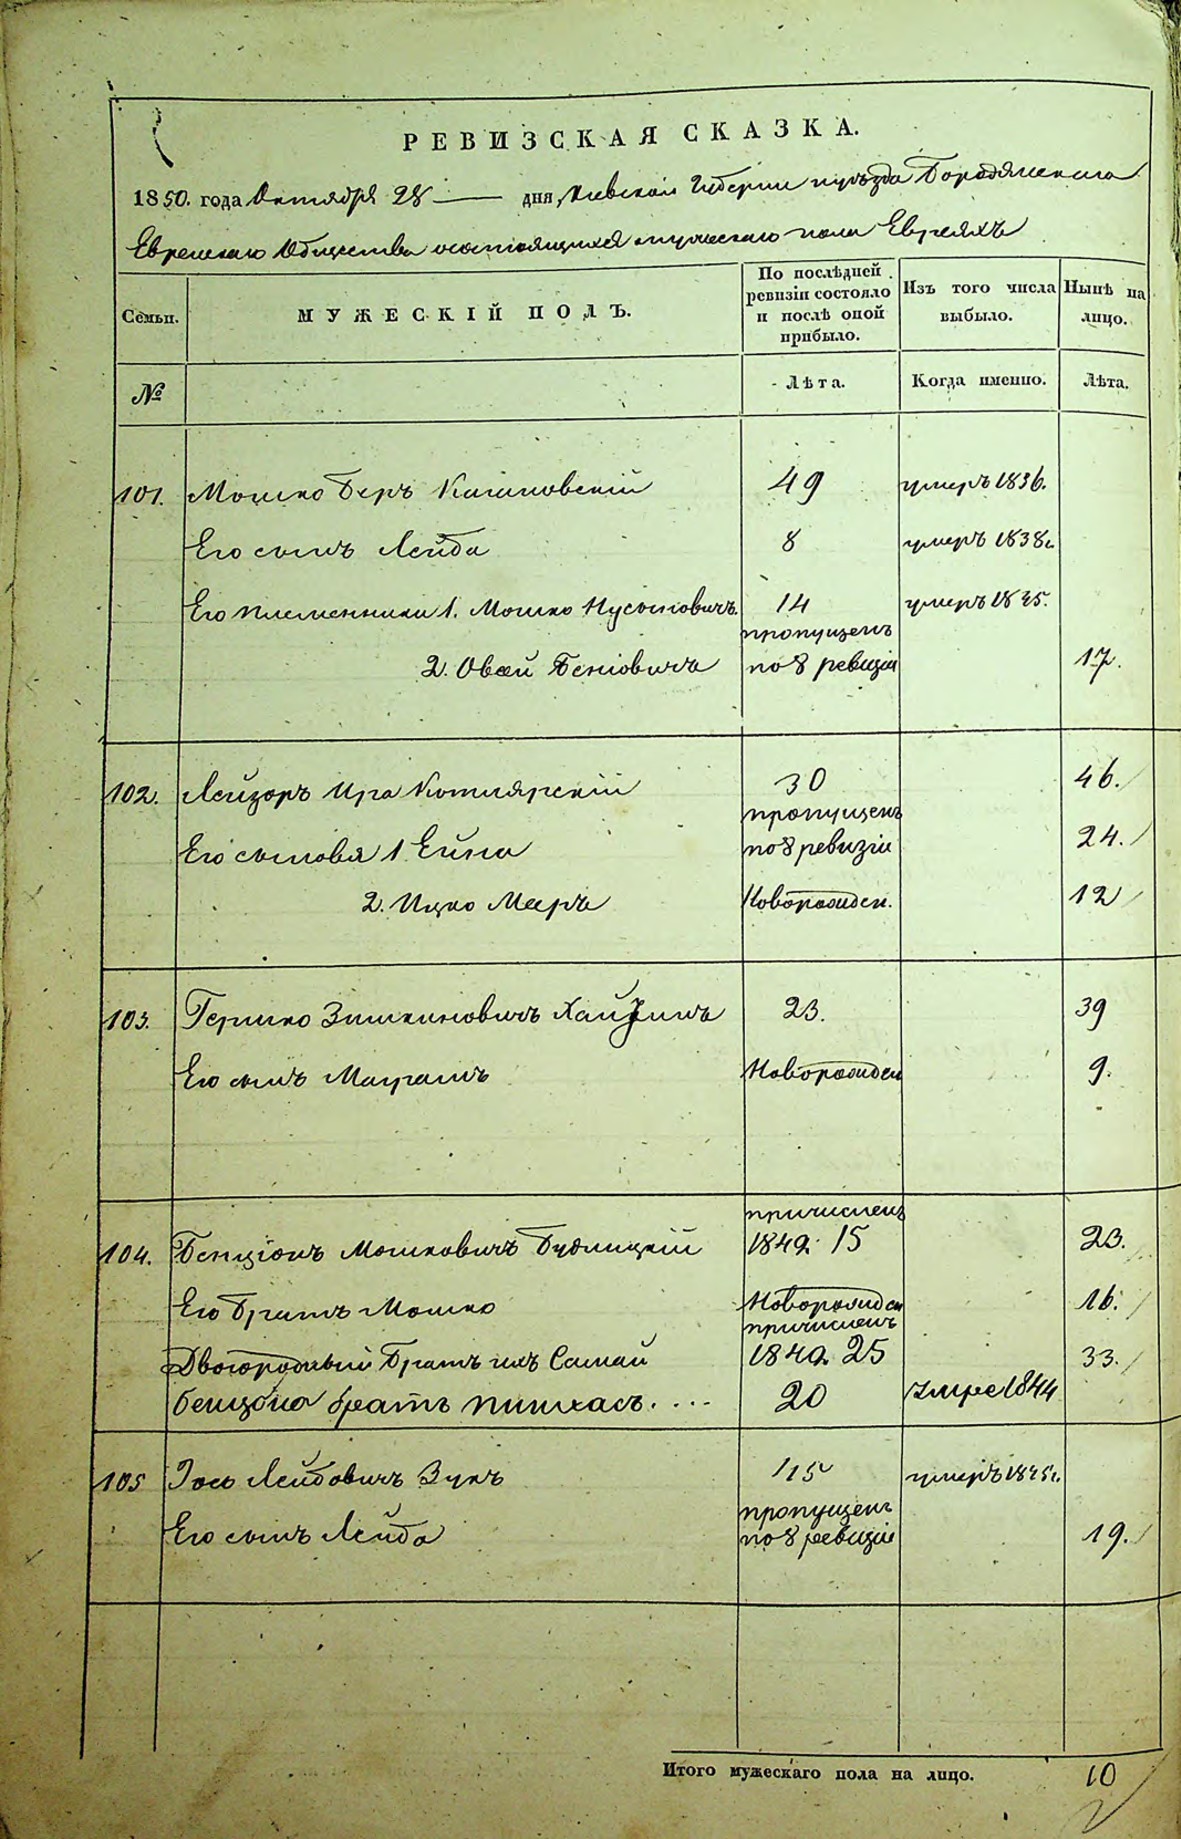 РЕВИЗСКАЯ СКАЗКА.
1850. года Октября 28 дня, Киевской Губернии и уѣзда Бородянскаго
Еврейскаго Общества о состоящихся мужескаго пола Евреяхъ
Семьи. МУЖЕСКІЙ ПОЛЪ. По послѣдней ревизіи состояло и послѣ оной прибыло. Изъ того числа выбыло. Нынѣ на лицо.
№ Лѣта. Когда именно. Лѣта.
101. Мошко Беръ 49 умеръ 1836.
Его сынъ Лейба 8 умеръ 1838г.
Его племенники 1. Мошко 14 умеръ
пропущенъ
2. Овсей по 8 ревизіи 17.
102. Лейзоръ Котлярскій 30 46.
пропущенъ
Его сыновья 1 по 8 ревизіи 24.
2. Ицко Мееръ Новорожден. 12
103. Гершко 23. 39
Его сынъ Новорожден 9.
причисленъ
104. Бенціонъ Мошковичъ Будницкій 1842 15 23.
Его братъ Мошко Новорожден 16.
причисленъ
Двоюродный братъ ихъ 1842 25 33.
Бенціона братъ Пинхасъ.... 20 Умре 1844
105 Іось Лейбовичъ Зукъ 15 умеръ
пропущенъ
Его сынъ Лейба по 8 ревизіи 19.
Итого мужескаго пола на лицо. 10